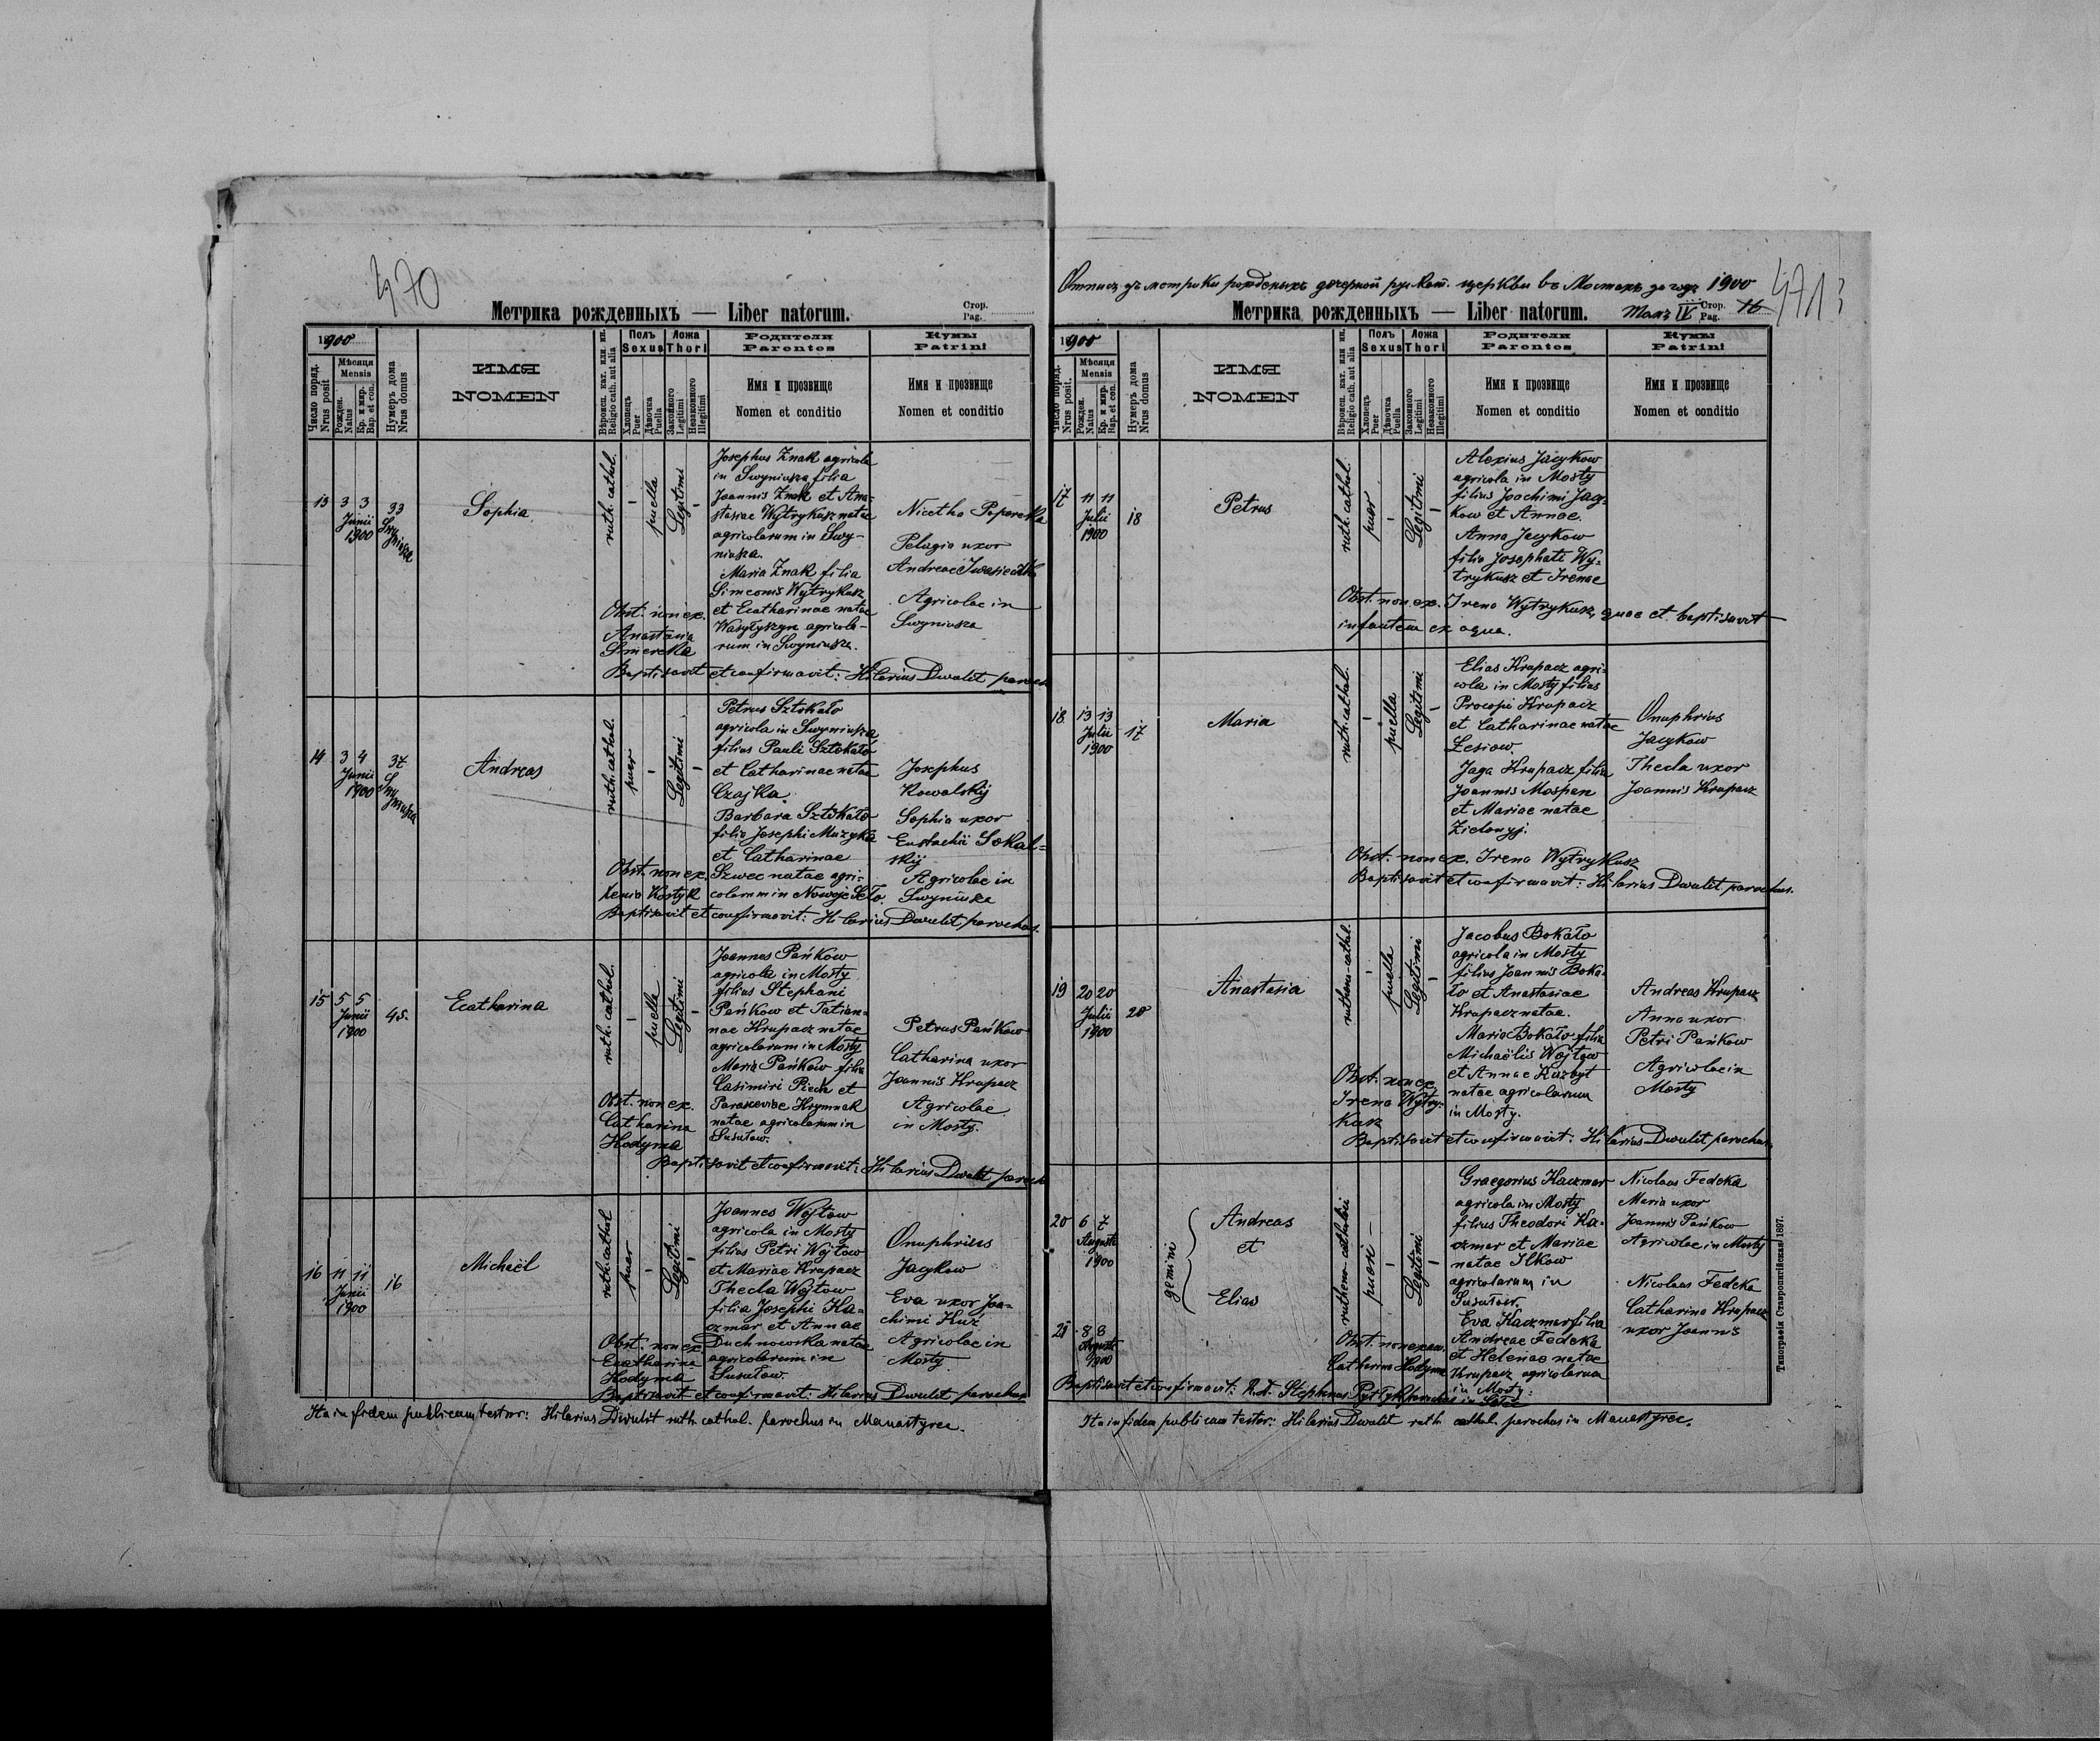 470
Метрика рожденныхъ — Liber natorum.
Стор.
Pag.
1900
Число поряд.
Nrus posit
Мѣсяця
Mensis
Рожден.
Natus
Кр. и мир.
Bap. et con.
Нумеръ дома
Nrus domus
ИМЯ
NOMEN
Вѣроисп. кат. или ин.
Religio cath. aut alia
Полъ
Sexus
Хлопецъ
Puer
Дѣвочка
Puella
Ложа
Thori
Законного
Legitimi
Незаконного
Illegitimi
Родители
Parentes
Имя и прозвище
Nomen et conditio
Кумы
Patrini
Имя и прозвище
Nomen et conditio
13
3 3
Junii
1900
33
Swyniusza
Sophia
ruth. cathol.
-
puella
Legitimi
-
Josephus Znak agricola
in Swyniusza filia
Joannis Znak et Ana-
stasiae Wytrykusz natae
agricolarum in Swy-
niusza.
Maria Znak filia
Simeonis Wytrykusz
et Ecatharinae natae
Wasyłyszyn agricola-
rum in Swyniusza.
Nicetha Papereka
Pelagia uxor
Andreae Iwasieczko
Agricolae in
Swyniusza
Obst. non ex.
Anastasia
Smereka
Baptisavit et confirmavit: Hilarius Dwulit paroch
14
3 4
Junii
1900
37
Swyniusza
Andreas
ruth. cathol.
puer
-
Legitimi
-
Petrus Sztokało
agricola in Swyniusza
filius Pauli Sztokało
et Catharinae natae
Czajka.
Barbara Sztokało
filia Josephi Muzyka
et Catharinae
Szwec natae agri-
colarum in Nowoje Seło.
Josephus
Kowalskij
Sophia uxor
Eustachii Sokal-
skij
Agricolae in
Swyniusza
Obst. non ex.
Xenia Kostyk
Baptisavit et confirmavit: Hilarius Dwulit, parochus.
15
5 5
Junii
1900
45.
Ecatharina
ruth. cathol.
-
puella
Legitimi
-
Joannes Pańkow
agricola in Mosty
filius Stephani
Pańkow et Tatian-
nae Krupacz natae
agricolarum in Mosty
Maria Pańkow filia
Casimiri Piech et
Parasceviae Hrymnak
natae agricolarum in
Susułow.
Petrus Pańkow
Catharina uxor
Joannis Krupacz
Agricolae
in Mosty.
Obst. non ex.
Catharina
Hodyma
Baptisavit et confirmavit: Hilarius Dwulit paroch
16
11 11
Junii
1900
16
Michaël
ruth. cathol
puer
-
Legitimi
-
Joannes Wojtow
agricola in Mosty
filius Petri Wojtow
et Mariae Krupacz
Thecla Wojtow
filia Josephi Ka-
czmar et Annae
Duchnowska natae
agricolarum in
Susułow.
Onuphrius
Jacykow
Eva uxor Joa-
chimi Kuź
Agricolae in
Mosty
Obst. non ex.
Ecatharina
Hodyma
Baptisavit et confirmavit: Hilarius Dwulit parochus
Ita in fidem publicam testor: Hilarius Dwulit ruth. cathol. parochus in Manastyrec.
Отпись зъ метрики рожденыхъ дочерной рус. кат. церкви въ Мостахъ за годъ 1900
471
Метрика рожденныхъ — Liber natorum.
Томъ IV
Стор.
Pag.
16
1900
Число поряд.
Nrus posit.
Мѣсяця
Mensis
Рожден.
Natus
Кр. и мир.
Bap. et con.
Нумеръ дома
Nrus domus
ИМЯ
NOMEN
Вѣроисп. кат. или ин.
Religio cath. aut alia
Полъ
Sexus
Хлопецъ
Puer
Дѣвочка
Puella
Ложа
Thori
Законного
Legitimi
Незаконного
Illegitimi
Родители
Parentes
Имя и прозвище
Nomen et conditio
Кумы
Patrini
Имя и прозвище
Nomen et conditio
17
11 11
Julii
1900
18
Petrus
ruth. cathol.
puer
-
Legitimi
-
Alexius Jacykow
agricola in Mosty
filius Joachimi Jacy-
kow et Annae.
Anna Jacykow
filia Josephati Wy-
trykusz et Irenae
Obst. non ex. Irena Wytrykusz, quae et baptisavit
infantem ex aqua.
18
13 13
Julii
1900
17
Maria
ruth. cathol.
-
puella
Legitimi
-
Elias Krupacz agri-
cola in Mosty filius
Procopii Krupacz
et Catharinae natae
Łesiow.
Jaga Krupacz filia
Joannis Mospan
et Mariae natae
Zielonyj.
Onuphrius
Jacykow
Thecla uxor
Joannis Krupacz
Obst. non ex. Irena Wytrykusz
Baptisavit et confirmavit: Hilarius Dwulit parochus.
19
20 20
Julii
1900
20
Anastasia
rutheno-cathol.
-
puella
Legitimi
-
Jacobus Bokało
agricola in Mosty
filius Joannis Boka-
ło et Anastasiae
Krupacz natae.
Maria Bokało filia
Michaëlis Wojtow
et Annae Kuzbyt
natae agricolarum
in Mosty.
Andreas Krupacz
Anna uxor
Petri Pańkow
Agricolae in
Mosty
Obst. non ex.
Irena Wytry-
kusz
Baptisavit et confirmavit: Hilarius Dwulit parochus.
20
6 7
Augusti
1900
21
8 8
Augusti
1900
gemini
Andreas
et
Elias
rutheno-catholici
pueri
-
Legitimi
-
Graegorius Kaczmar
agricola in Mosty
filius Theodori Ka-
czmar et Mariae
natae Ilkow
agricolarum in
Susułow.
Eva Kaczmar filia
Andreae Fedeka
et Helenae natae
Krupacz agricolarum
in Mosty.
Nicolaus Fedeka
Maria uxor
Joannis Pańkow
Agricolae in Mosty
Nicolaus Fedeka
Catharina Krupacz
uxor Joannis
Obst. non exam.
Catharina Hodyma
Baptisavit et confirmavit: R. D. Stephanus Pyłtyk parochus in
Ita in fidem publicam testor: Hilarius Dwulit ruth. cathol. parochus in Manastyrec.
Типографія Ставропигійская 1897.